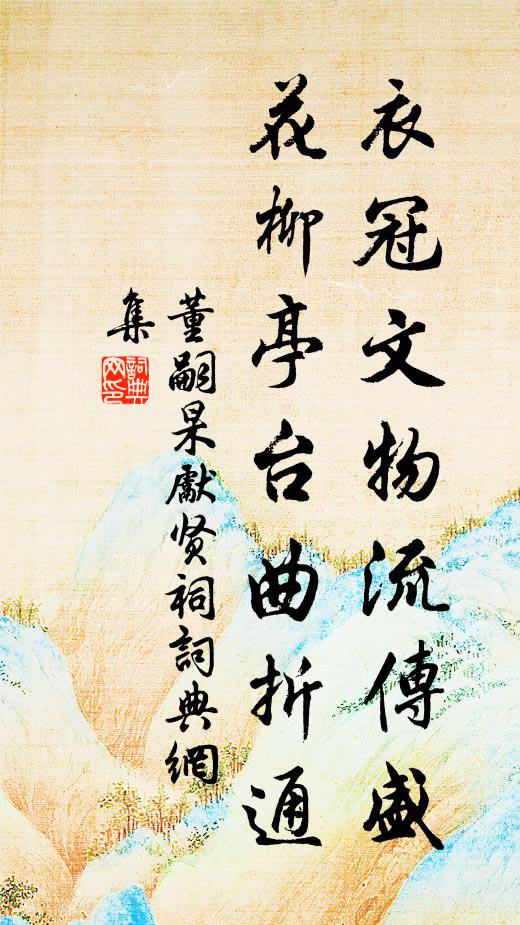 衣冠文物流傳盛
花柳亭台曲折通
董嗣杲獻贤祠詞典網
集
詞典
网印